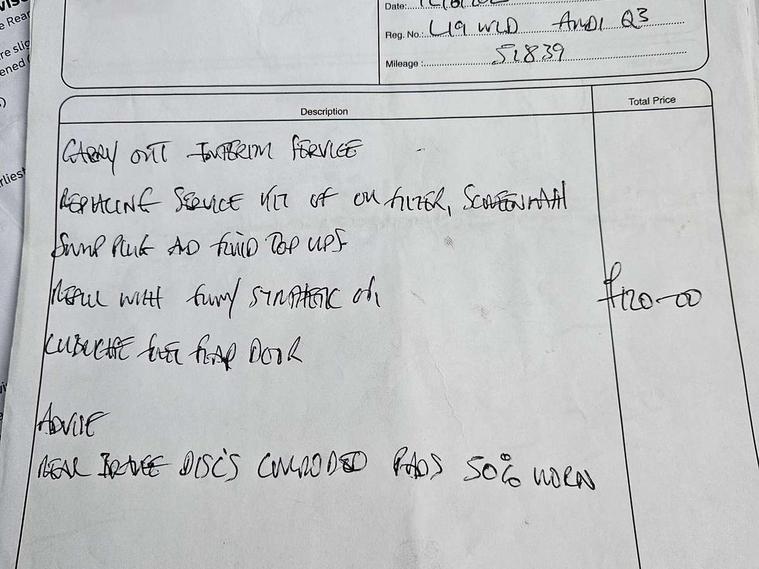 Date:
Reg. No.: L19 WLD AUDI Q3
Mileage: 51839
Description
Total Price
CARRY OUT INTERIM SERVICE
REPLACING SERVICE KIT OF OIL FILTER, SCREENWASH
SUMP PLUG AD FLUID TOP UPS
REFILL WITH FULLY SYNTHETIC OIL
£120-00
LUBRICATE FUEL FLAP DOOR
ADVISE
REAR BRAKE DISC'S CORRODED PADS 50% WORN